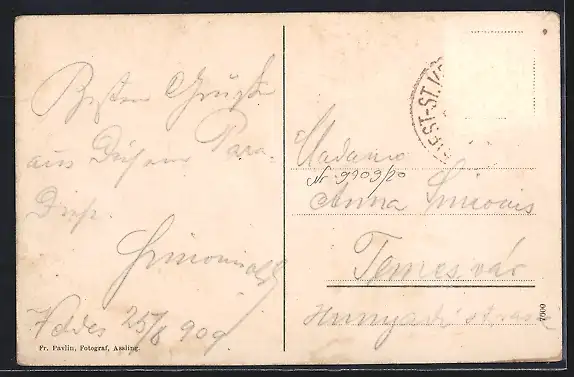 Besten Grüße
aus diesem Para-
dies.
Veldes 25/8 909
Fr. Pavlin, Fotograf, Assling.
IEST-ST.
Madame
Nr 9909/20
Anna Simonis
Temesvár
Hunyadi strasse
7000